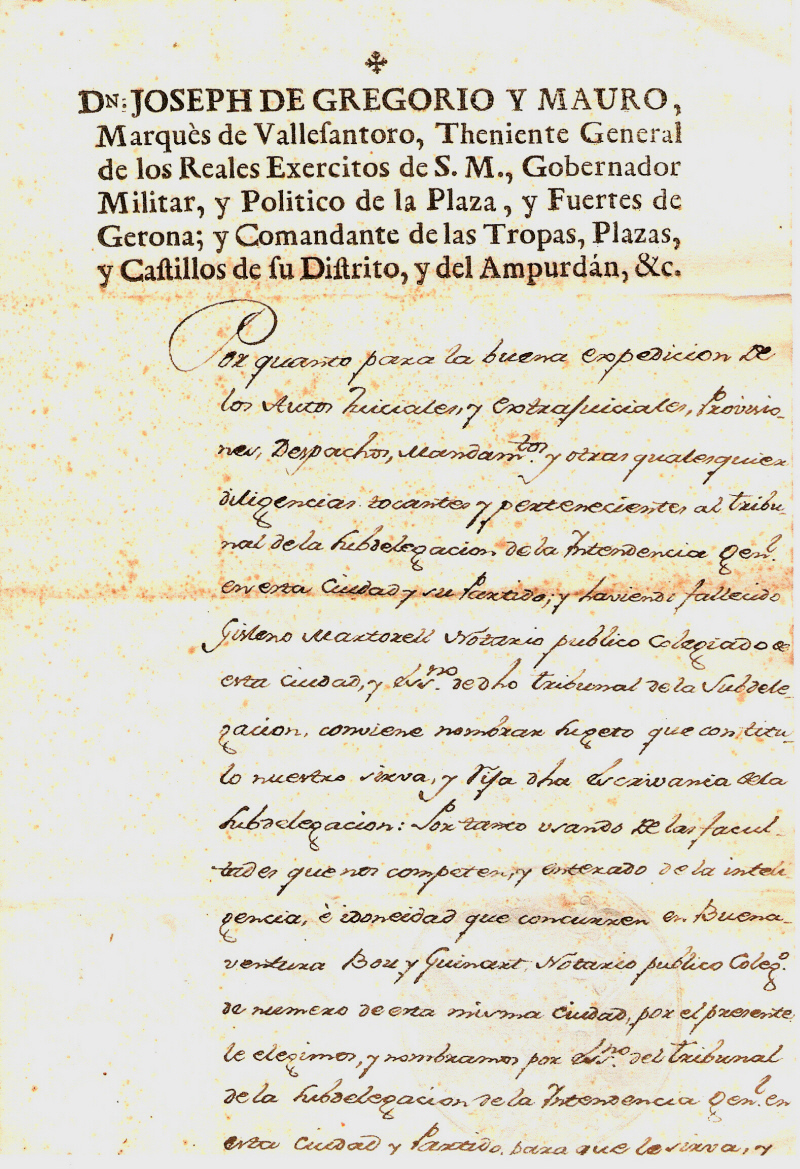 ✠
Dⁿ: JOSEPH DE GREGORIO Y MAURO,
Marquès de Valleſantoro, Theniente General
de los Reales Exercitos de S. M., Gobernador
Militar, y Politico de la Plaza, y Fuertes de
Gerona; y Comandante de las Tropas, Plazas,
y Caſtillos de ſu Diſtrito, y del Ampurdán, &c.
Por quanto para la buena expedicion de
los Autos Juiciales, y extrajuiciales, Provisio-
nes, Despachos, Mandam.tos y otras qualesquier
diligencias tocantes y pertenecientes al tribu-
nal de la Subdelegacion de la Intendencia Gen.l
en esta Ciudad y su Partido; y haviendo fallecido
Gisleno Martorell Notario publico Colegiado de
esta Ciudad, y Ess.no de dho tribunal de la Subdele-
gacion, conviene nombrar sugeto que con titu-
lo nuestro sirva, y rija dha Escrivania de la
Subdelegacion: Por tanto usando de las facul-
tades que nos competen, y enterado de la inteli-
gencia, è idoneidad que concurren en Buena-
ventura Bou y Guinart, Notario publico Coleg.o
de numero de esta misma Ciudad, por el presente
le elegimos, y nombramos por Ess.no del tribunal
de la Subdelegacion de la Intendencia Gen.l en
esta Ciudad y Partido, para que le sirva, y